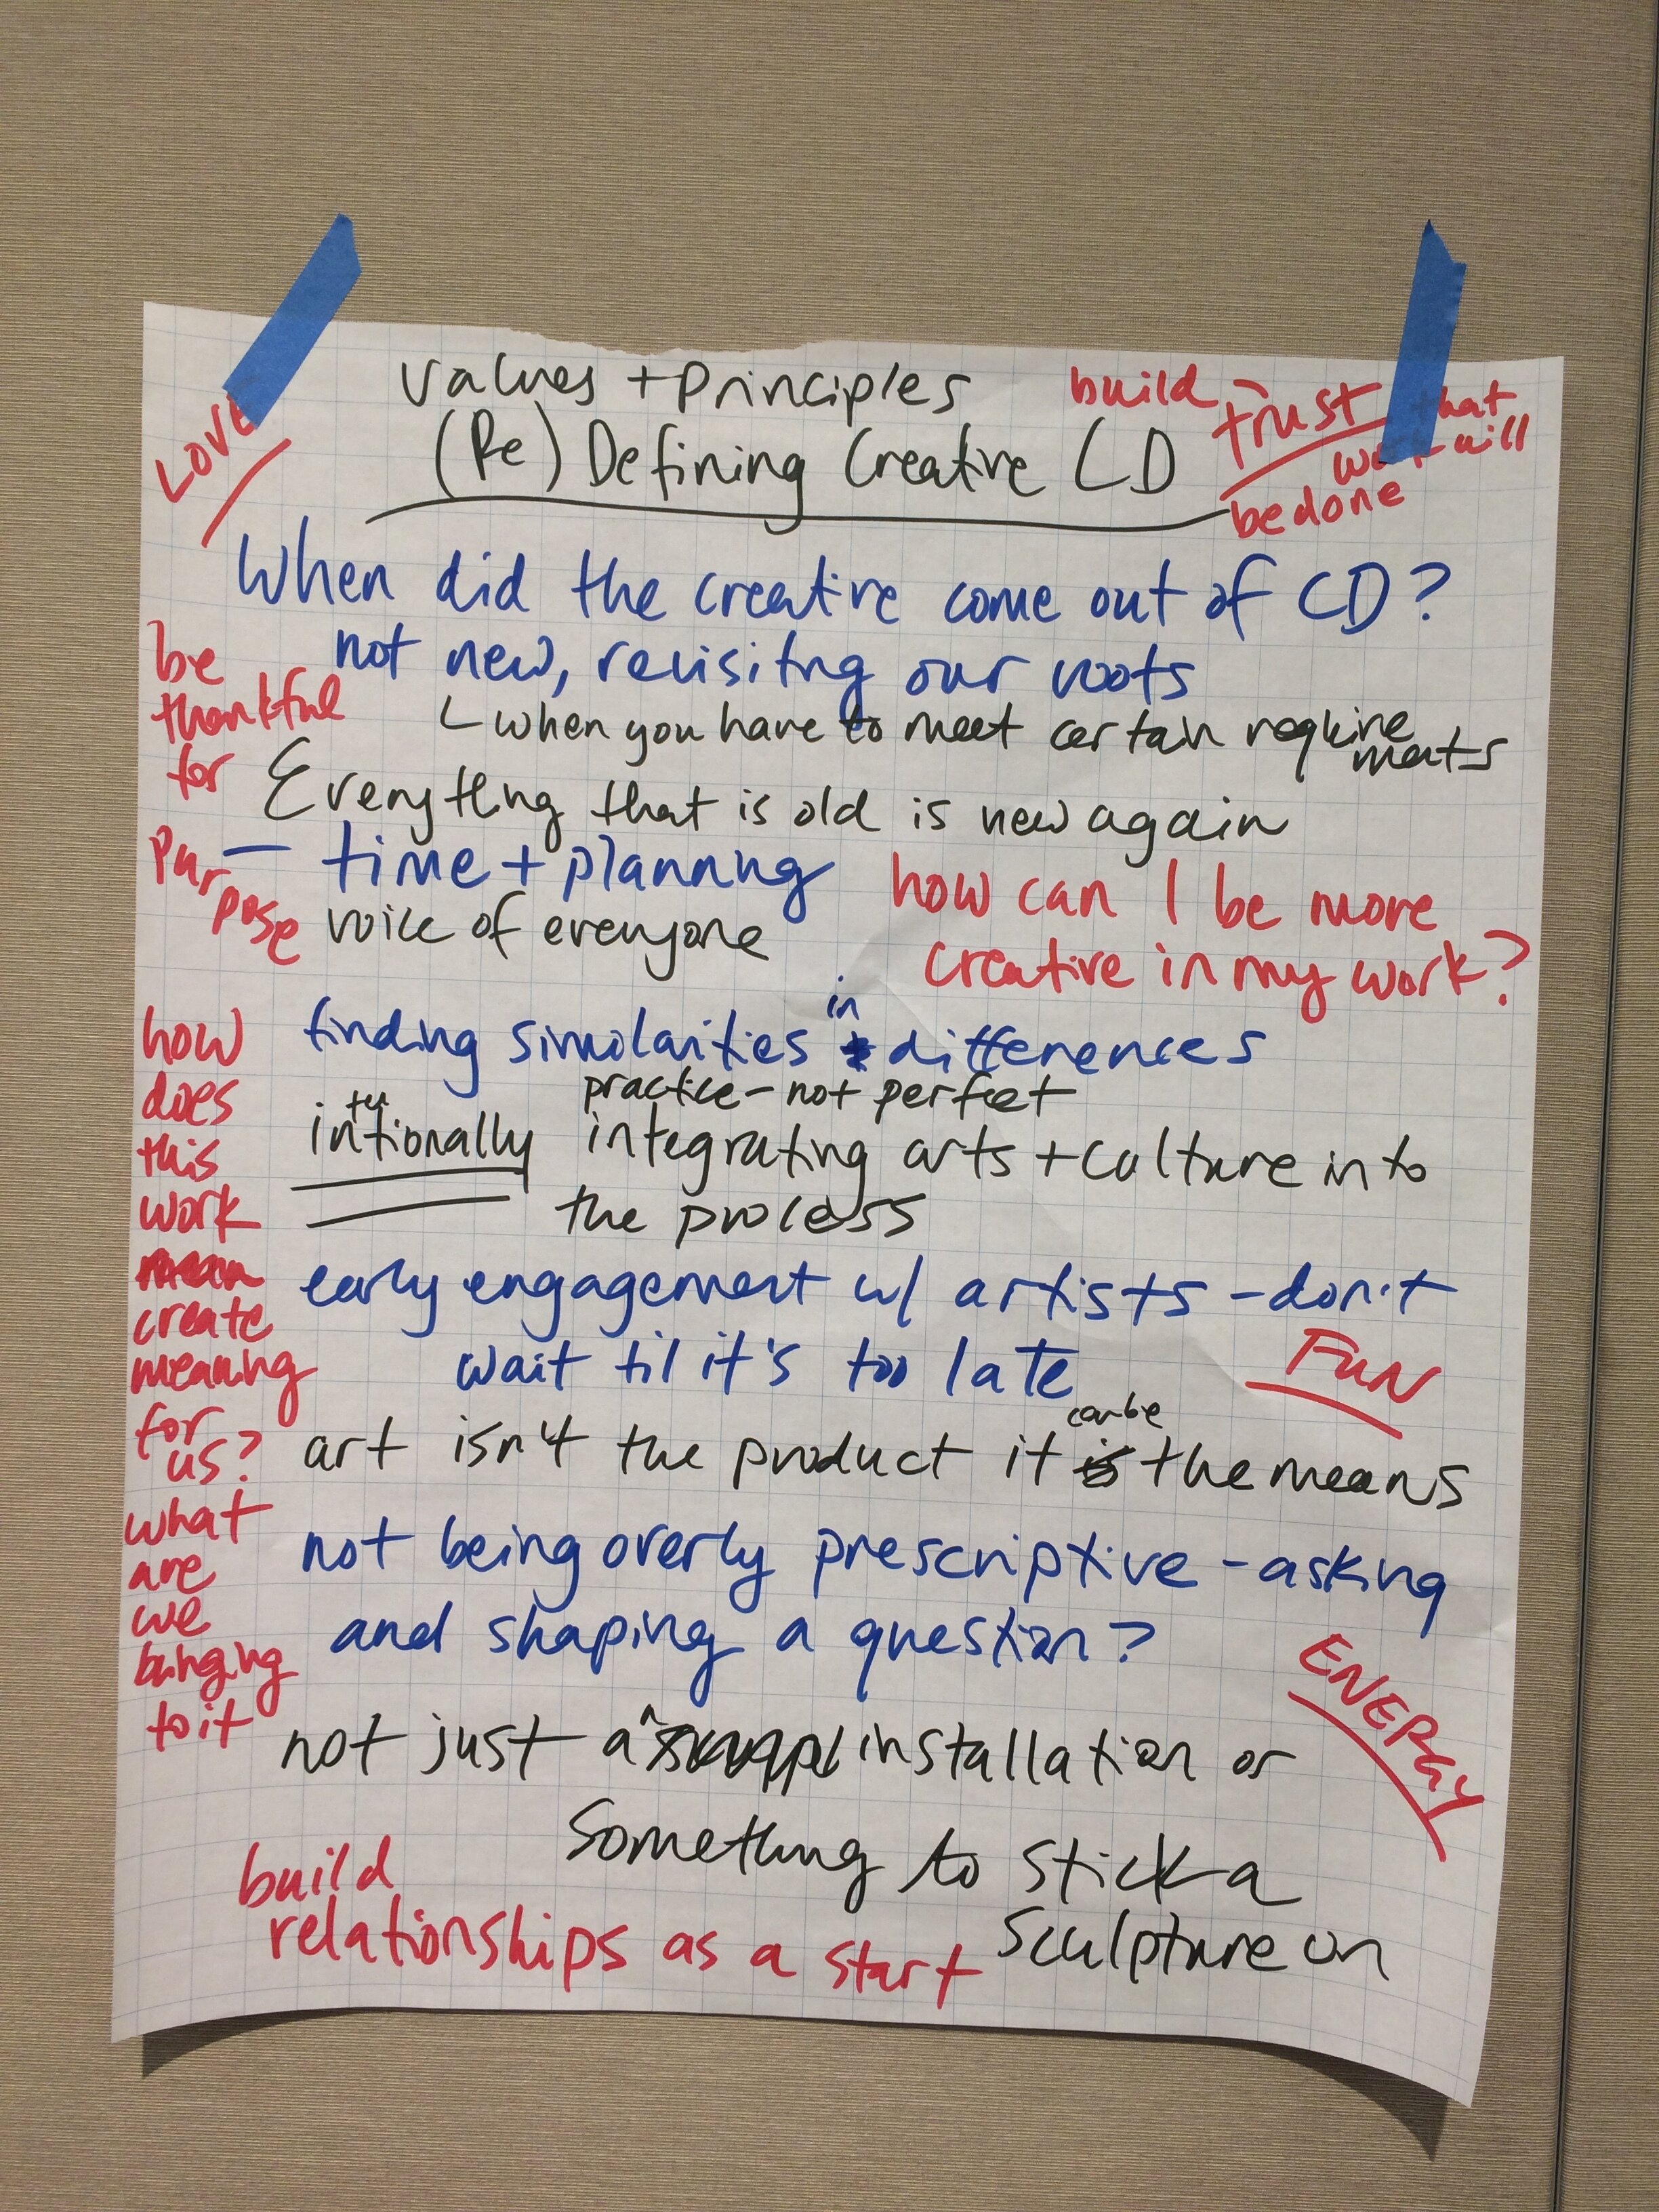 values + principles
(Re) Defining Creative CD
LOVE
build trust that
work will
be done
When did the creative come out of CD?
not new, revisiting our roots
when you have to meet certain require
ments
Everything that is old is new again
— time + planning
voice of everyone
be
thankful
for
Pur
pose
how can I be more
creative in my work?
in
finding similarities differences
practice - not perfect
ten
intionally integrating arts + culture into
the process
early engagement w/ artists - don't
wait til it's too late
FUN
can be
art isn't the product it is the means
not being overly prescriptive - asking
and shaping a question?
how
does
this
work
mean
create
meaning
for
us?
what
are
we
bringing
to it
ENERGY
not just a installation or
Something to stick a
sculpture on
build
relationships as a start